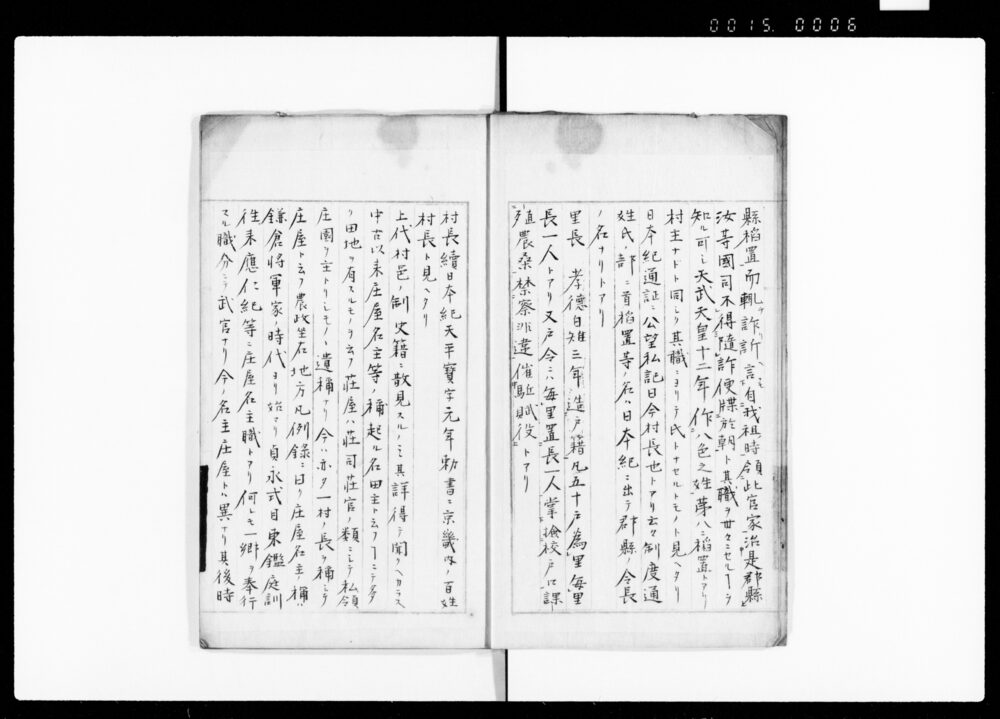 0015.0006
縣稲置而輙詐訴言自我祖時領此官家治是郡縣
汝等國司不得隨詐便牒於朝トス其職ヲ世々ニセルヿヲ
知ル可シ天武天皇十二年作八色之姓第八ニ稲置トアリ
村主ナドト同シク其職ニヨリテ氏トナセルトモノト見ヘタリ
日本紀通証ニ公望私記曰今村長也トアリ云々制度通
姓氏ノ部ニ首稲置等ノ名ハ日本紀ニ出テ郡縣ノ令長
ノ名ナリトアリ
里長 孝德白雉三年造戸籍凡五十戸為里毎里
長一人トアリ又戸令ニハ毎里置長一人掌撿校戸口課
殖農桑禁察非違催駈賦役トアリ
村長續日本紀天平寶字元年勅書ニ京畿内ノ百姓
村長ト見ヘタリ
上代村邑ノ制史籍ニ散見スルノミ其詳得テ聞クヘカラス
中古以来庄屋名主等ノ稱起ル名田主ト云フヿニテ多
ク田地ヲ有スルモノヲ云フ荘屋ハ荘司荘官ノ類ニシテ私領
庄園ヲ主トリシモノヽ遺稱ナリ今ハ亦タ一村ノ長ヲ稱シテ
庄屋ト云フ農政坐右地方凡例録ニ曰ク庄屋名主ノ稱ハ
鎌倉将軍家ノ時代ヨリ始マリ貞永式目東鑑庭訓
往来應仁紀等ニ庄屋名主職トアリ何レモ一郷ヲ奉行
スル職分ニテ武官ナリ今ノ名主庄屋トハ異ナリ其後時